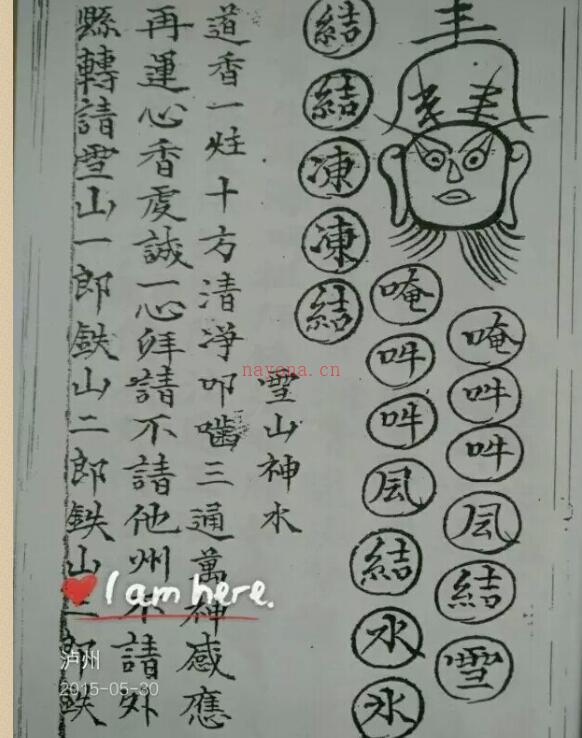 唵吽吽凨結雪
唵吽吽凨結水氷
結結凍凍結
雪山神水
道香一炷十方清淨叩嚙三通萬神感應
再運心香虔誠一心拜請不請他州不請外
縣轉請雪山一郎鉄山二郎鉄山三郎鉄
nayona.cn
I am here.
泸州
2015-05-30